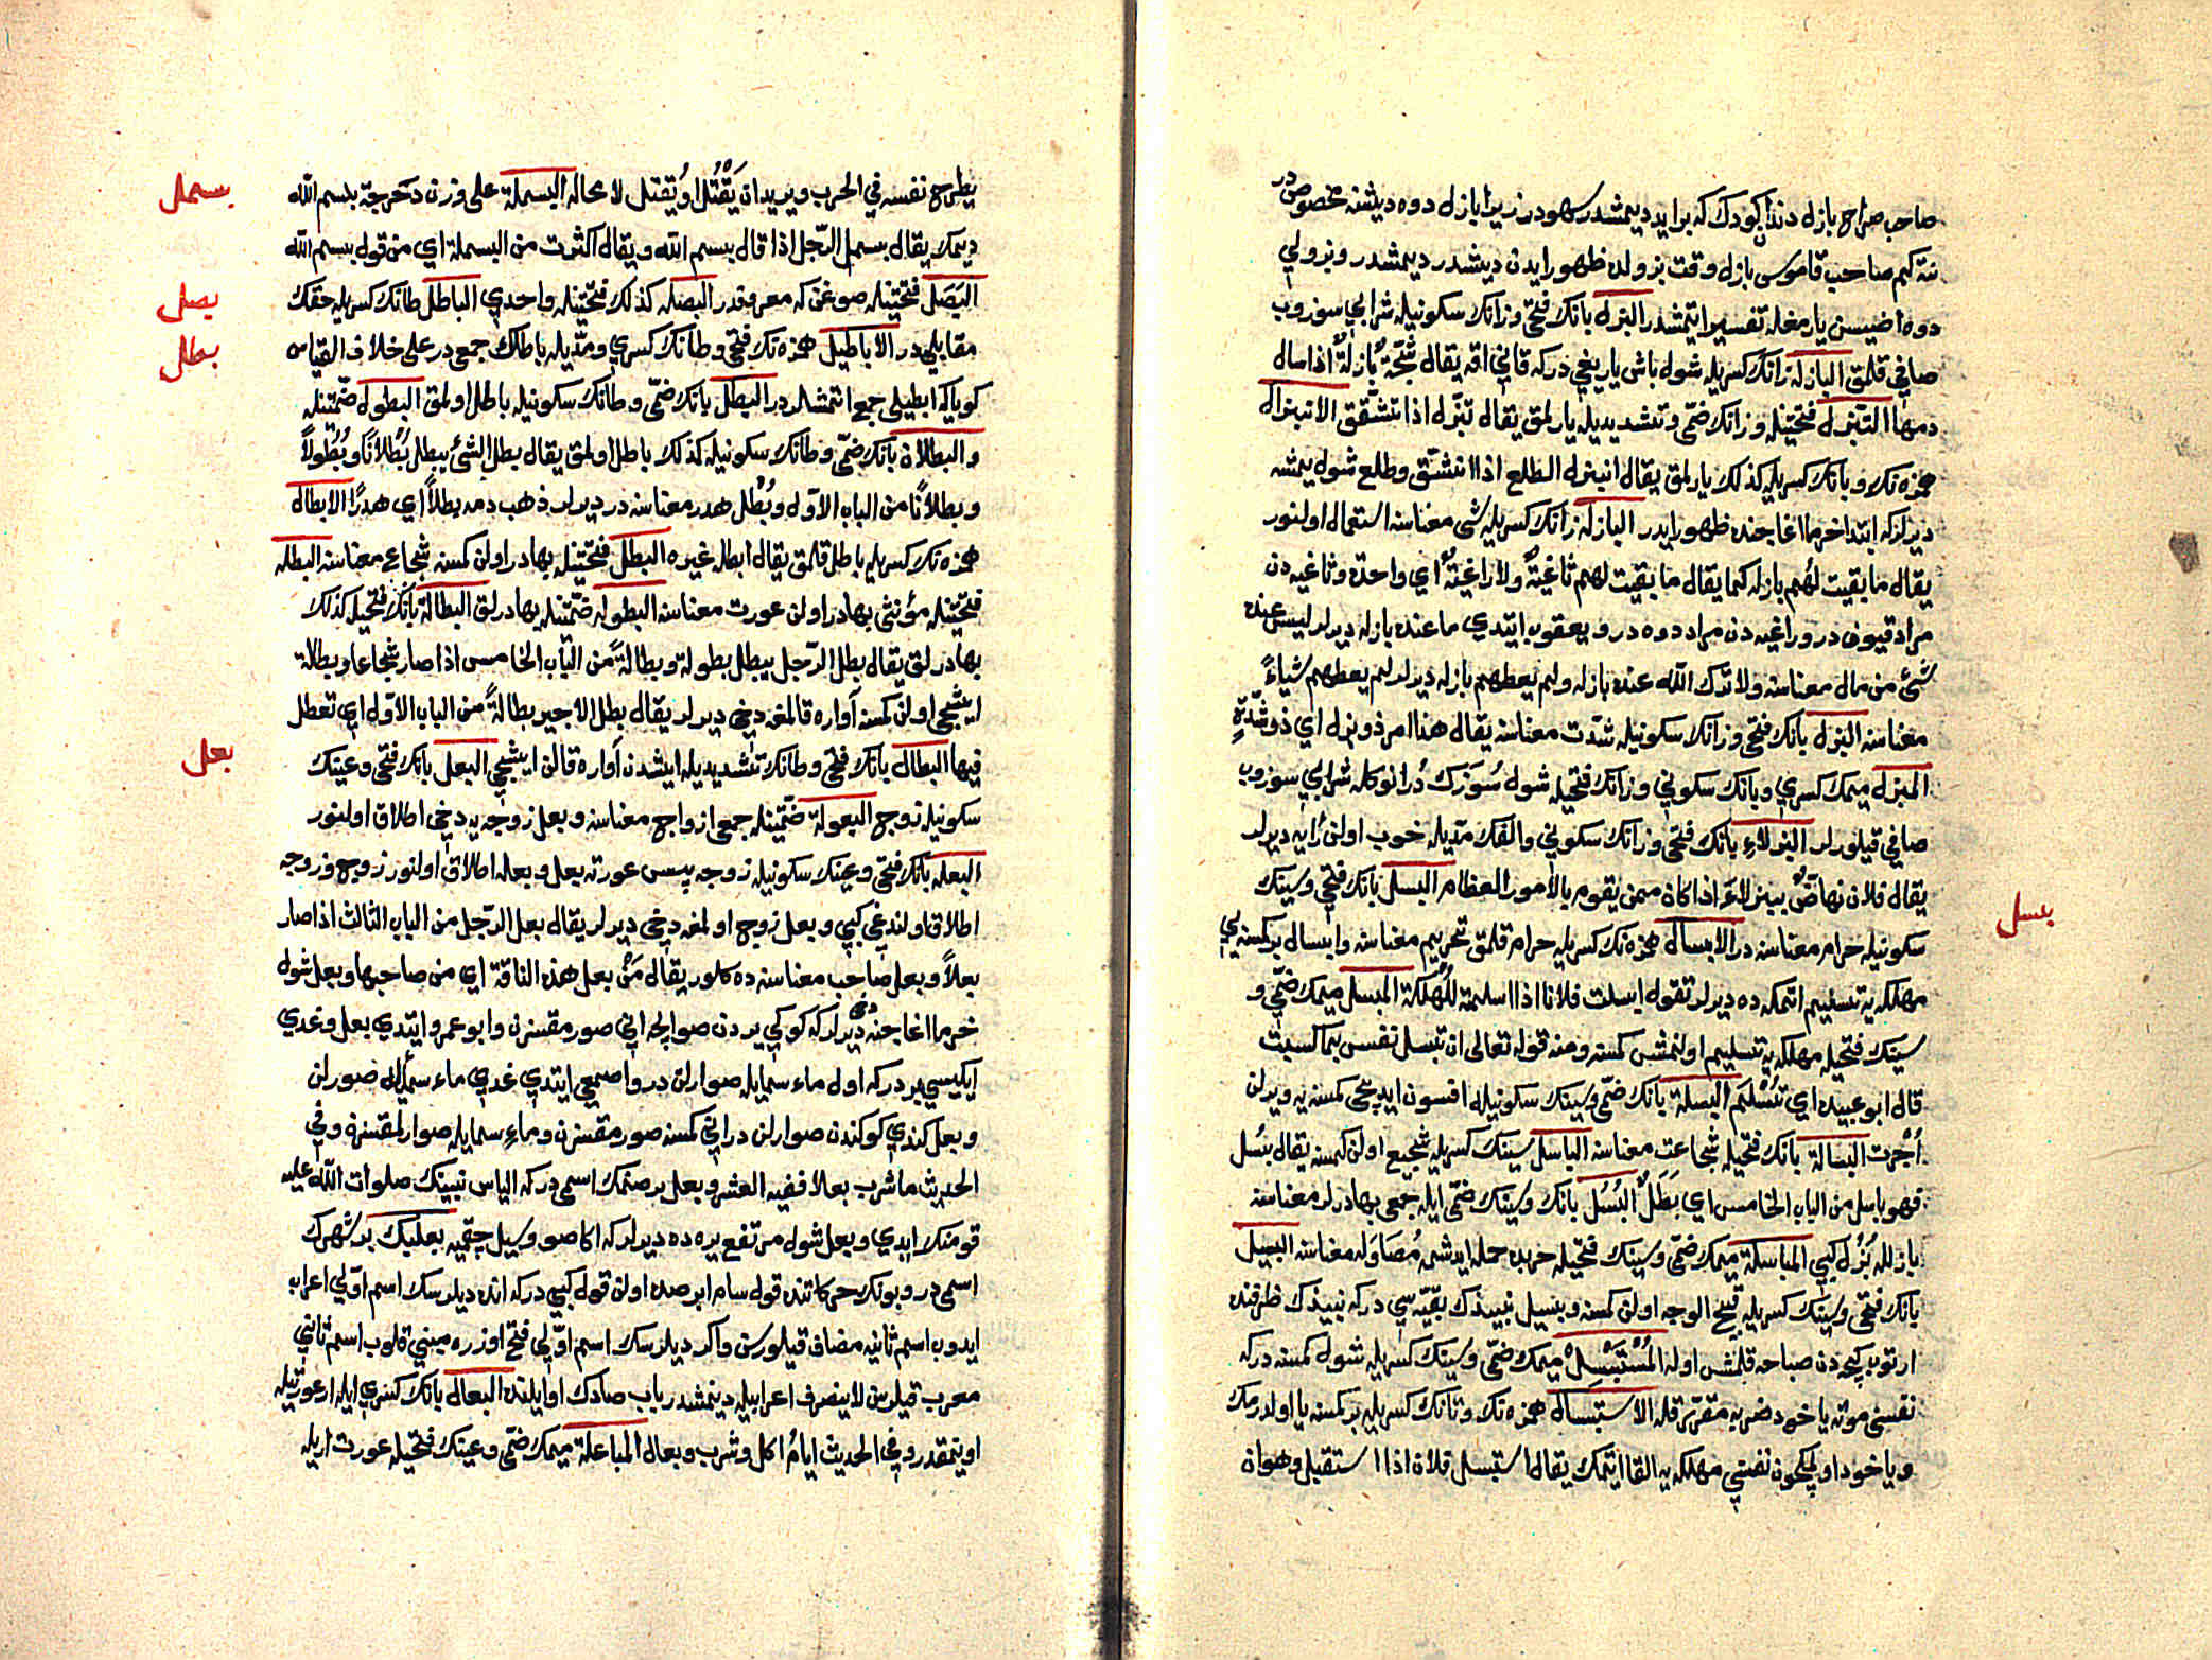 صاحب صراح بازل دندا كودك كه برايد ديمشدر سهودر زيرا بازل دوه ديشنه مخصوصدر
نته كيم صاحب قاموس بازل وقت بزولده ظهور ايدن ديشدر ديمشدر وبزولي
دوه اضيسن يارمغله تفسير ايتمشدر البزل بانك فتحي وزانك سكونيله شرابي سوزوب
صافي قلمق البازلة زانك كسريله شول باش ياريغي دركه قاني اقه يقال شجّة بازلة اذا سال
دمها التبزل فتحتيله وزانك ضمّي وتشديديله يارلمق يقال تبزّل اذا تشقق الانبزال
همزه نك وبانك كسريله كذلك يارلمق يقال انبزل الطلع اذا انشقّ وطلع شول يمشه
ديرلر كه ابتدا خرما اغاجنده ظهور ايدر البازلة زانك كسريله شئ معناسنه استعمال اولنور
يقال ما بقيت لهم بازلة كما يقال ما بقيت لهم ثاغية ولا راغية اي واحدة وثاغيه دن
مراد قيون در وراغيه دن مراد دوه در ويعقوب ايتدي ما عنده بازلة ديرلر ليس عنده
شئ من مال معناسنه ولا ترك الله عنده بازلة ولم يعطهم بازلة ديرلر لم يعطهم شياءً
معناسنه البزل بانك فتحي وزانك سكونيله شدّت معناسنه يقال هذا امر ذو بزل اي ذو شدّةٍ
المبزل ميمك كسري وبانك سكوني وزانك فتحيله شول سوزك در انوكله شرابي سوزوب
صافي قيلورلر البزلاء بانك فتحي وزانك سكوني والفك مدّيله خوب اولن رايه ديرلر
يقال فلان نهاض ببزلاء اذا كان ممن يقوم بالامور العظام البسل بانك فتحي وسينك
بسل
سكونيله حرام معناسنه در الابسال همزه نك كسريله حرام قلمق تحريم معناسنه وابسال بر كمسنه يي
مهلكه يه تسليم اتمكه ده ديرلر تقول ابسلت فلانا اذا اسلمته للهلكة المبسل ميمك ضمّي و
سينك فتحيله مهلكه يه تسليم اولنمش كمسنه ومنه قوله تعالى ان تبسل نفس بما كسبت
قال ابو عبيده اي تُسْلَم البسلة بانك ضمّي وسينك سكونيله افسون ايديجي كمسنه يه ويرلن
اُجْرت البسالة بانك فتحيله شجاعت معناسنه الباسل سينك كسريله شجيع اولن كمسنه يقال بسُل
فهو باسل من الباب الخامس اي بَطَلٌ البُسُل بانك وسينك ضمّي ايله جمعي بهادرلر معناسنه
بازلله بُزُل كبي المباسلة ميمك ضمّي وسينك فتحيله حربده حمله ايدشمه مُصَاوَله معناسنه البسيل
بانك فتحي وسينك كسريله قبيح الوجه اولن كمسنه وبسيل نبيذك بقيّه سي دركه نبيذك ظرفنده
ارتوب كيجه دن صباحه قلمش اوله المُسْتَبْسِلْ ميمك ضمّي وسينك كسريله شول كمسنه دركه
نفسني موته ياخود ضربه مقرّر قله الاستبسال همزه نك وتانك كسريله بر كمسنه يا اولدرمك
وياخود اولمكچون نفسني مهلكه يه القا ايتمك يقال استبسل فلان اذا استقبل وهو ان
يطرح نفسه في الحرب ويريد ان يَقْتُل او يُقتل لا محاله البسملة على وزن دَحْرجة بسم الله
بسمل
ديمك يقال بسمل الرّجل اذا قال بسم الله ويقال اكثرت من البسملة اي من قول بسم الله
البَصَل فتحتيله صوغن كه معروفدر البصلة كذلك فتحتيله واحدي الباطل طانك كسريله حقك
بصل
مقابلي در الاباطيل همزه نك فتحي وطانك كسري ومدّيله باطلك جمعي در على خلاف القياس
بطل
كويا كه ابطيلي جمع اتمشلردر البطل بانك ضمّي وطانك سكونيله باطل اولمق البطول ضمّتيله
والبطلان بانك ضمّي وطانك سكونيله كذلك باطل اولمق يقال بطل الشئ يبطل بُطْلاً وبُطُولاً
وبطلانًا من الباب الاوّل وبُطْل هدر معناسنه در ديرلر ذهب دمه بطلاً اي هدرًا الابطال
همزه نك كسريله باطل قلمق يقال ابطل غيره البطل فتحتيله بهادر اولن كمسنه شجاع معناسنه البطلة
فتحتيله مؤنثي بهادر اولن عورت معناسنه البطولة ضمّتيله بهادرلق البطالة بانك فتحيله كذلك
بهادرلق يقال بطل الرّجل يبطل بطولة وبطالةً من الباب الخامس اذا صار شجاعا وبطالة
ايشجي اولن كمسنه آواره قالمغه دخي ديرلر يقال بطل الاجير بطالةً من الباب الاوّل اي تعطل
فهو البطّال بانك فتحي وطانك تشديديله ايشدن آواره قالن ايشجي البعل بانك فتحي وعينك
بعل
سكونيله زوج البعولة ضمّتيله جمعي ازواج معناسنه وبعل زوجه يه دخي اطلاق اولنور
البعلة بانك فتحي وعينك سكونيله زوجه پس عورته بعل وبعلة اطلاق اولنور زوج وزوجه
اطلاق اولندغي كبي وبعل زوج اولمغه دخي ديرلر يقال بعل الرّجل من الباب الثالث اذا صار
بعلاً وبعل صاحب معناسنه ده كلور يقال مَنْ بعل هذه الناقة اي من صاحبها وبعل شول
خرما اغاجنه دخي ديرلر كه كوكي يردن صو ايچه اني صورمقسزن وابو عمرو ايتدي بعل وغدي
ايكيسي بردر كه اول ماء سمايله صوارلن در واصمعي ايتدي غدي ماء سمايله صورلن
وبعل كندي كوكندن صوارلن در اني كمسنه صورمقسزن وماء سمايله صوارلمقسزن وفي
الحديث ما شرب بعلا ففيه العشر وبعل بر صنمك اسمي دركه الياس نبينك صلوات الله عليه
قومنك ايدي وبعل شول مرتفع يره ده ديرلر كه اكا صو وسيل چقميه بعلبك بر شهرك
اسمي در وبونك حركاتنده قول سام ابرصده اولن قول كبي دركه انده ديلرسك اسم اوّلي اعراب
ايدوب اسم ثانيه مضاف قيلورسن واكر ديلرسك اسم اوّلي فتح اوزره مبني قلوب اسم ثاني
معرب قيلرسن لا ينصرف اعرابيله دينمشدر باب صادك اوايلنده البعال بانك كسري ايله ار عورتيله
اوينمقدر وفي الحديث ايامُ اكل وشرب وبعال المباعلة ميمك ضمّي وعينك فتحيله عورت اريله